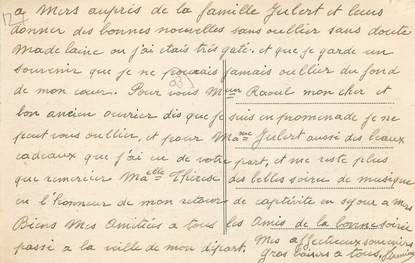 a Mers aupris de la famille Gulert et leurs
donner des bonnes nouvelles sans oullier sans doute
Madelaine ou j'ai étais très gaté. et que je garde un
souvenir que je ne pouvais jamais oullier du fond
de mon cœur. Pour vous Meur Raoul mon cher et
bon ancien ouvrier dès que je suis en promenade je ne
peut vous oullier, et pour Mame Gulert aussi des beaux
cadeaux que j'ai eu de votre part, et me reste plus
que remercier Maelle Thérèse des belles soirée de musique
en l'honneur de mon retour de captivité en séjour a Mers
Biens Mes Amitiés a tous les Amis de la bonne soirée
passé a la veille de mon départ. Mes affectueux souvenirs
Gros baisers a tous,